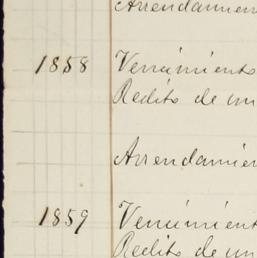 Arrendamien
1858 Vencimiento
Redito de un
Arrendamien
1859 Vencimient
Redito de un